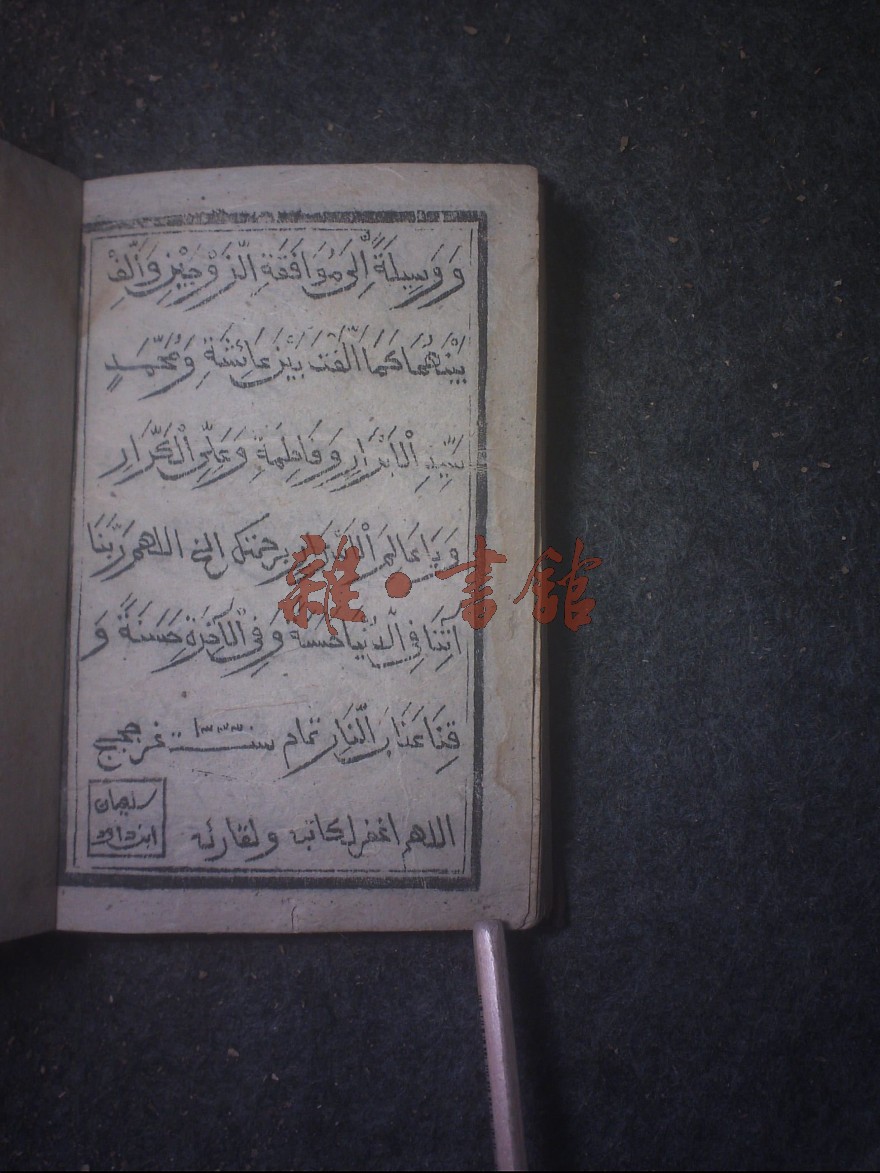 وَوَسِيلَةً اِلَى مُوَافَقَةِ الزَّوْجَيْنِ وَاَلِّفْ
بَيْنَهُمَا كَمَا اَلَّفْتَ بَيْنَ عَائِشَةِ وَمُحَمَّدٍ
سَيِّدِ الْاَبْرَارِ وَفَاطِمَةِ وَعَلِيِّ الْكَرَّارِ
وَيَا عَالِمَ برحمتك الخ اللهم رَبَّنَا
آتِنَا فِي الدُّنْيَا حَسَنَةً وَفِي الْآخِرَةِ حَسَنَةً وَ
قِنَا عَذَابَ النَّارِ تمام سنة ١٣٣٣
اللهم اغفر لكاتبه ولقارئه
سليمان
ابن داود
雜·書館